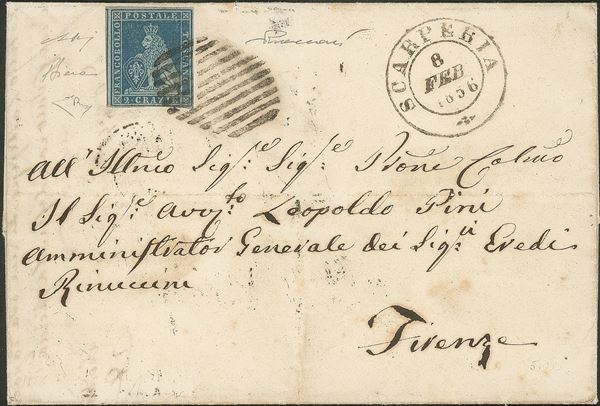 FRANCOBOLLO POSTALE TOSCANO
2 CRAZIE
SCARPERIA
8
FEB
1856
All' Illmo Sigr.e Sigr.e Prone Colmo
Il Sigr.e Avv.to Leopoldo Pini
Amministrator Generale dei Sigri Eredi
Rinuccini
Firenze